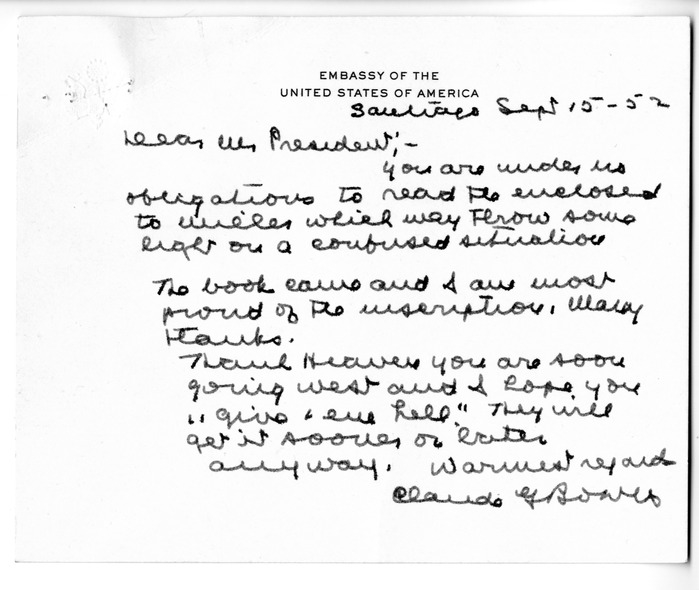 EMBASSY OF THE
UNITED STATES OF AMERICA
Santiago Sept 15-52
Dear Mr President;-
You are under no
obligations to read the enclosed
to Miller which may throw some
light on a confused situation
The book came and I am most
proud of the inscription. Many
thanks.
Thank Heaven you are soon
going west and I hope you
"give 'em hell". They will
get it sooner or later
anyway. Warmest regards
Claude G Bowers